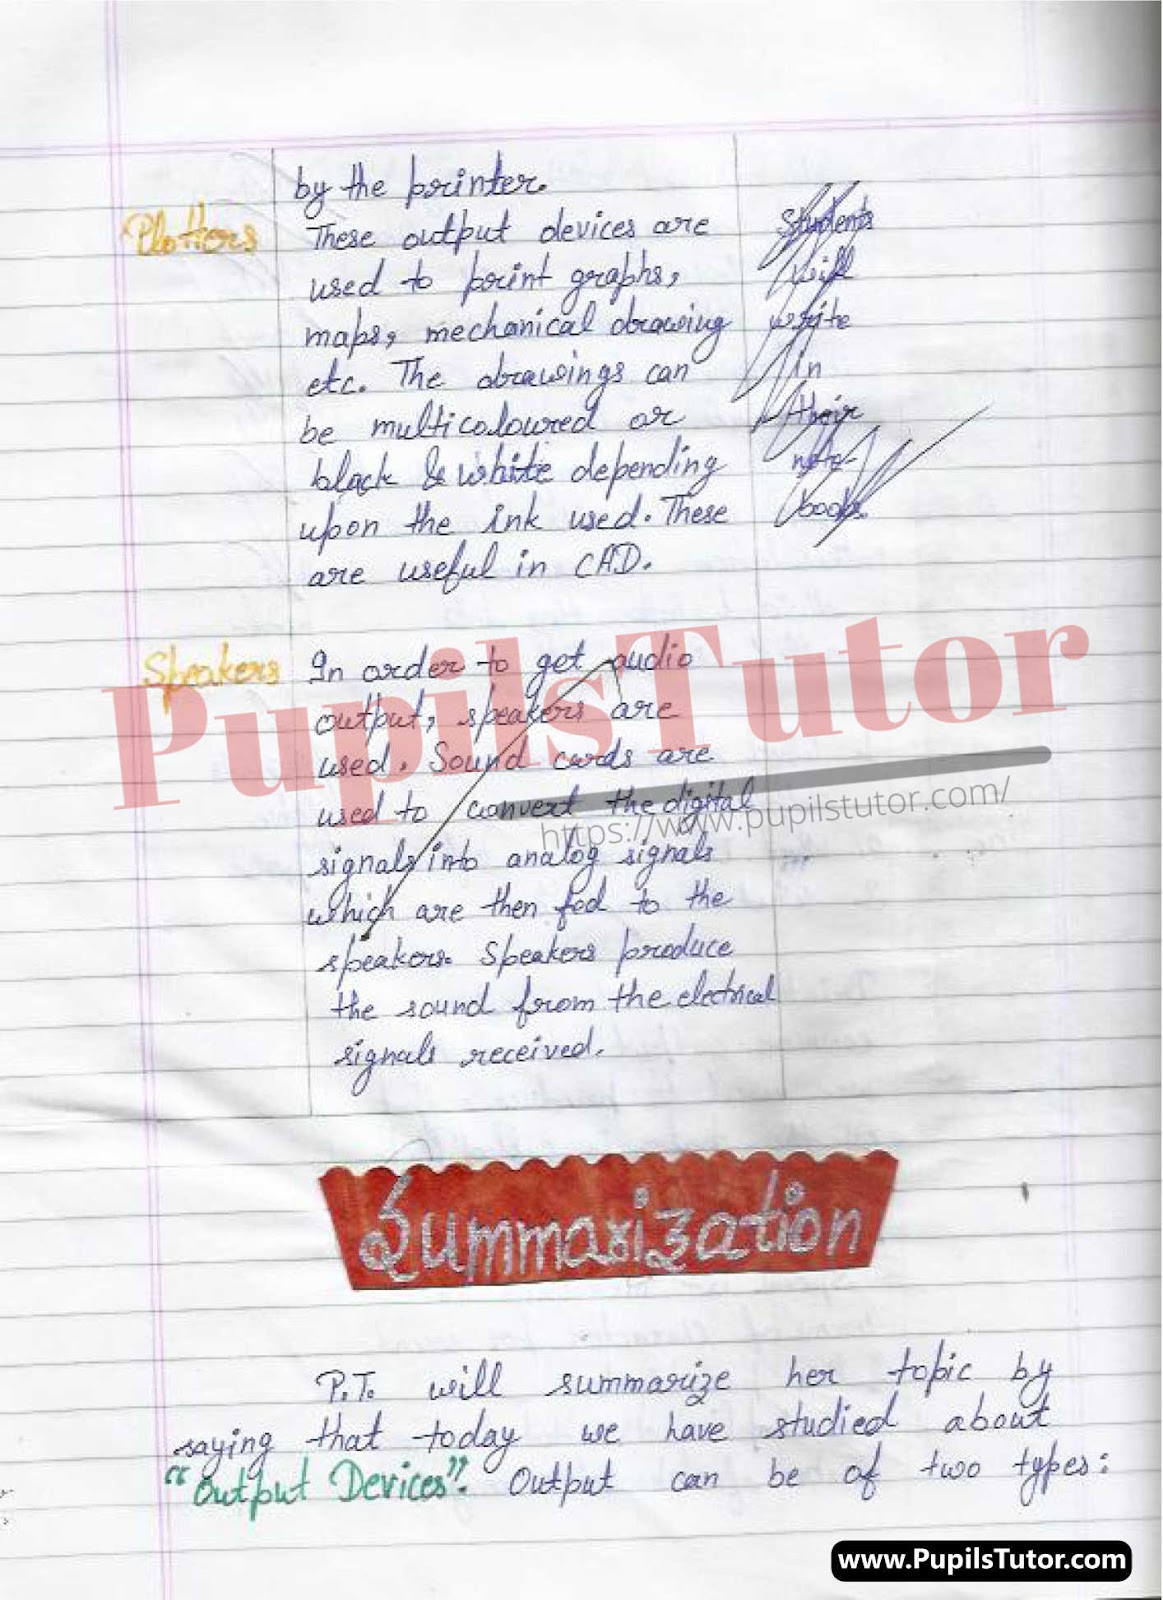 by the printer.
Plotters
These output devices are
used to print graphs,
maps, mechanical drawing
etc. The drawings can
be multicoloured or
black & white depending
upon the ink used. These
are useful in CAD.
Students
will
write
in
their
note-
books.
Speakers
In order to get audio
output, speakers are
used. Sound cards are
used to convert the digital
signals into analog signals
which are then fed to the
speakers. Speakers produce
the sound from the electrical
signals received.
PupilsTutor
https://www.pupilstutor.com/
Summarization
P.T. will summarize her topic by
saying that today we have studied about
"Output Devices". Output can be of two types:
www.PupilsTutor.com